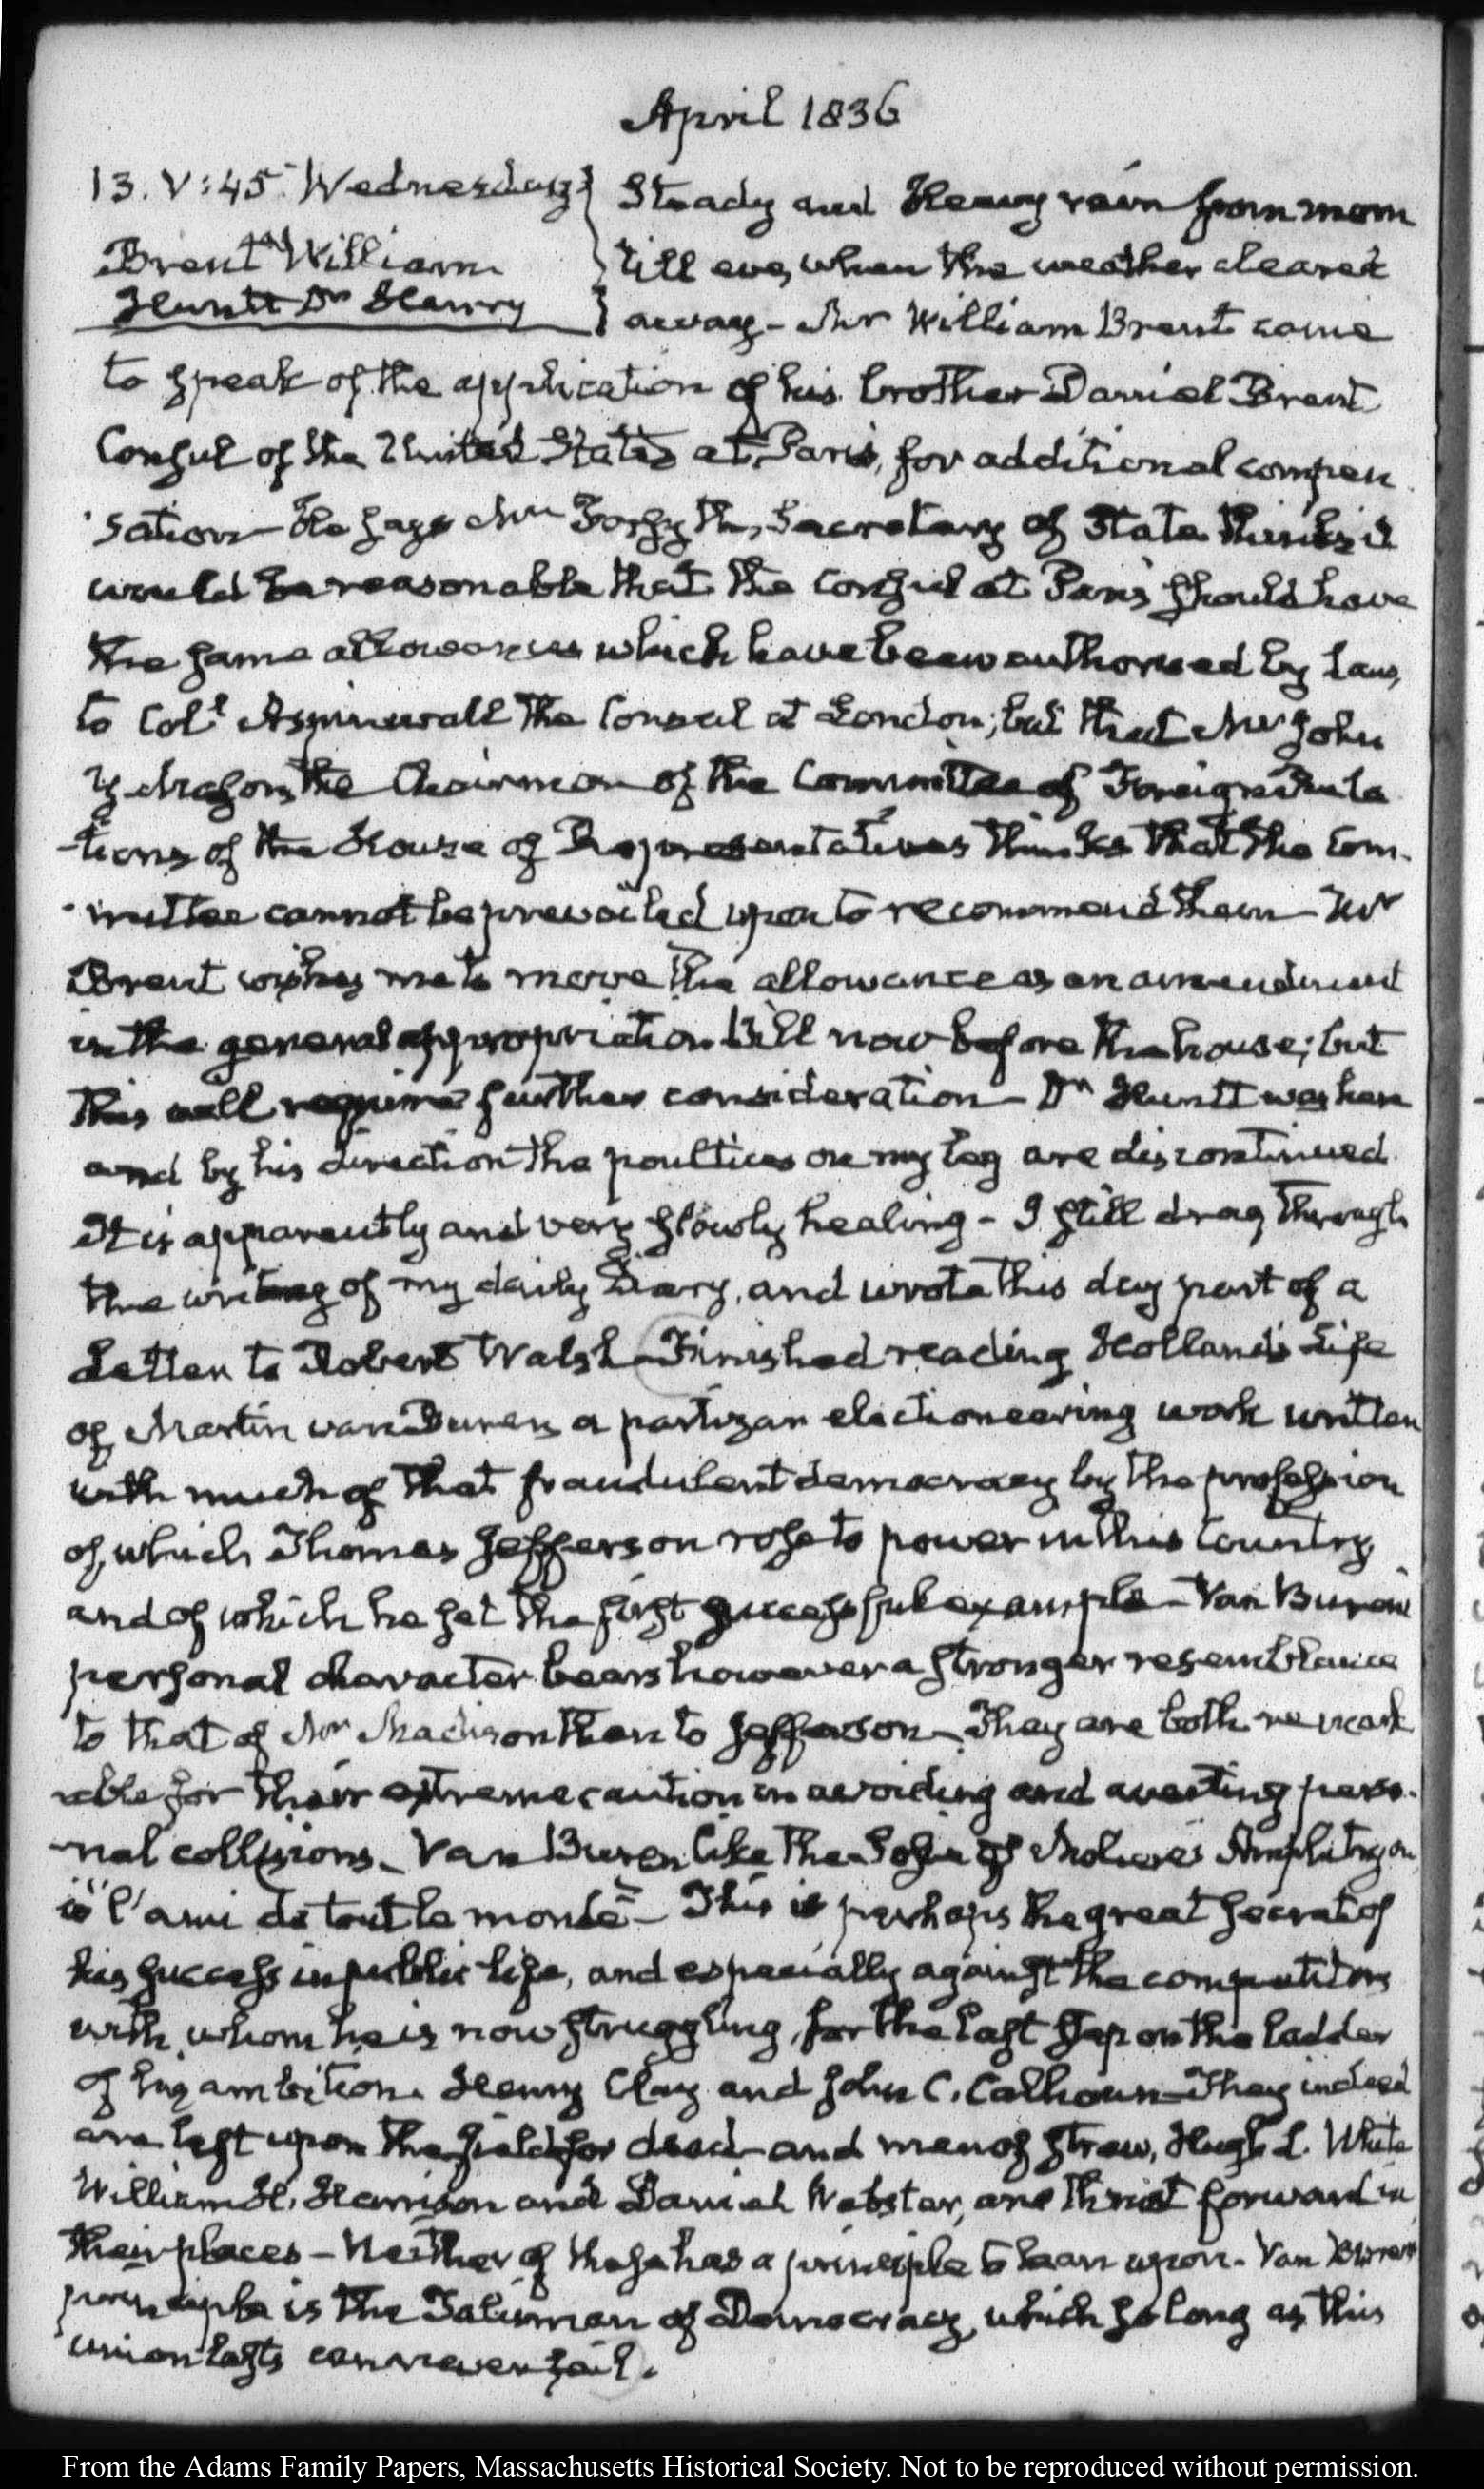 April 1836
13. V:45. Wednesday
Brent William
Huntt Dr Henry
Steady and Heavy rain from morn
till eve, when the weather cleared
away - Mr William Brent came
to speak of the application of his brother Daniel Brent
Consul of the United States at Paris, for additional compen
sation - He says Mr Forsyth, Secretary of State thinks it
would be reasonable that the Consul at Paris should have
the same allowances which have been authorised by law,
to Coll Aspinwall the Consul at London; but that Mr John
Y. Mason, the Chairman of the Committee of Foreign Rela
-tions of the House of Representatives thinks that the Com-
-mittee cannot be prevailed upon to recommend them - Mr
Brent wishes me to move the allowance as an amendment
in the general appropriation Bill now before the house; but
this will require further consideration - Dr Huntt was here
and by his direction the poultices on my leg are discontinued.
It is apparently and very slowly healing - I still drag through
the writing of my daily Diary, and wrote this day part of a
Letter to Robert Walsh - Finished reading Holland's Life
of Martin van Buren, a partizan electioneering work written
with much of that fraudulent democracy by the profession
of which Thomas Jefferson rose to power in this Country,
and of which he set the first successful example - Van Buren's
personal character bears however a stronger resemblance
to that of Mr Madison than to Jefferson - They are both remark
able for their extreme caution in avoiding and averting perso-
-nal collisions - Van Buren like the Sosie of Moliere's Amphitryon,
is "l'ami de tout le monde" - This is perhaps the great secret of
his success in public life, and especially against the competitors
with whom he is now struggling, for the last step on the ladder
of his ambition. Henry Clay and John C. Calhoun - They indeed
are left upon the field for dead - and men of straw, Hugh L. White
William H. Harrison and Daniel Webster, are thrust forward in
their places - Neither of these has a principle to lean upon - Van Buren's
principle is the Talisman of Democracy, which so long as this
union lasts can never fail.
From the Adams Family Papers, Massachusetts Historical Society. Not to be reproduced without permission.